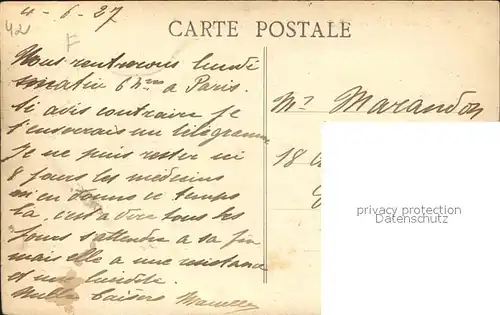 4-6-27
42
F
CARTE POSTALE
Nous rentrerons lundi
matin 6 h à Paris.
Si avis contraire je
t'enverrais un télégramme
Je ne puis rester ici
8 jours les médecins
en donne ce temps
là, c'est à dire tous les
jours s'attendre a sa fin
mais elle a une resistance
et une lucidité.
Mille baisers Marcelle
Mr Marandon
18
privacy protection
www.oldthing.com